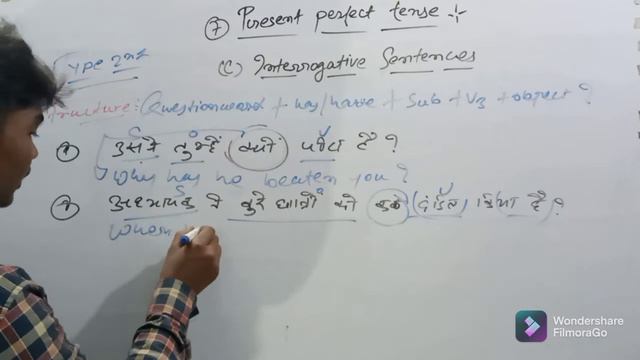 ⑦ Present perfect tense :-
(C) Interrogative Sentences
Type 2nd
Structure: Questionword + has/have + Sub + V3 + object ?
उसने तुम्हें क्यों पीटा है ?
Why has he beaten you ?
अध्यापक ने बुरे छात्रों को कब दंडित किया है ?
When
Wondershare
FilmoraGo